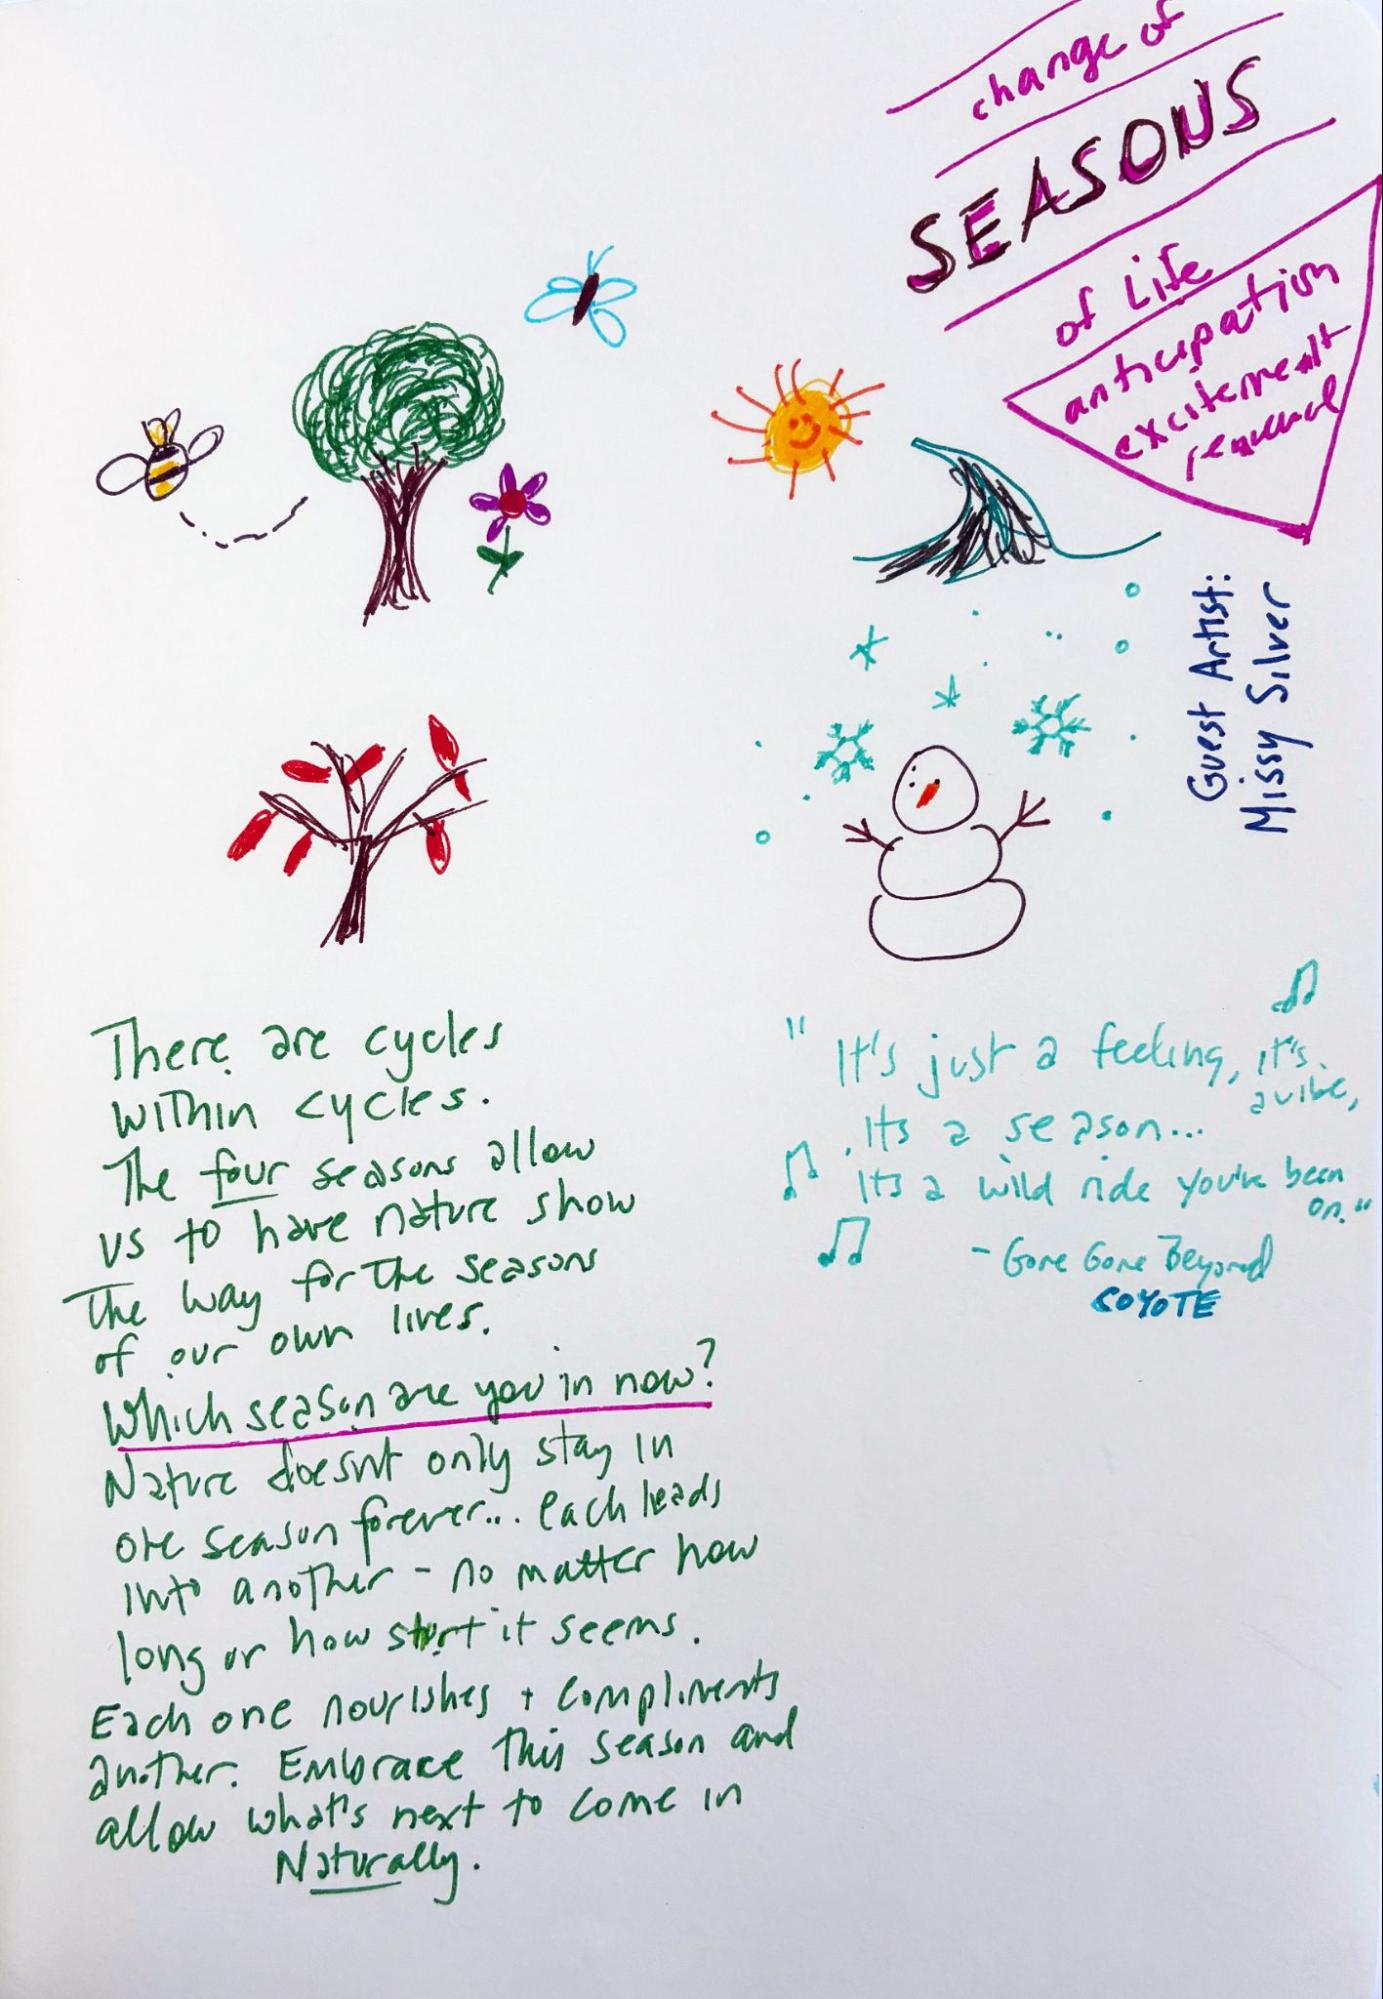 change of
SEASONS
of Life
anticipation
excitement
renewal
Guest Artist:
Missy Silver
There are cycles
within cycles.
The four seasons allow
us to have nature show
the way for the seasons
of our own lives.
Which season are you in now?
Nature doesn't only stay in
one season forever... each leads
into another - no matter how
long or how short it seems.
Each one nourishes + compliments
another. Embrace this season and
allow what's next to come in
Naturally.
"It's just a feeling, it's
a vibe,
Its a season...
Its a wild ride you've been
on."
- Gone Gone Beyond
COYOTE